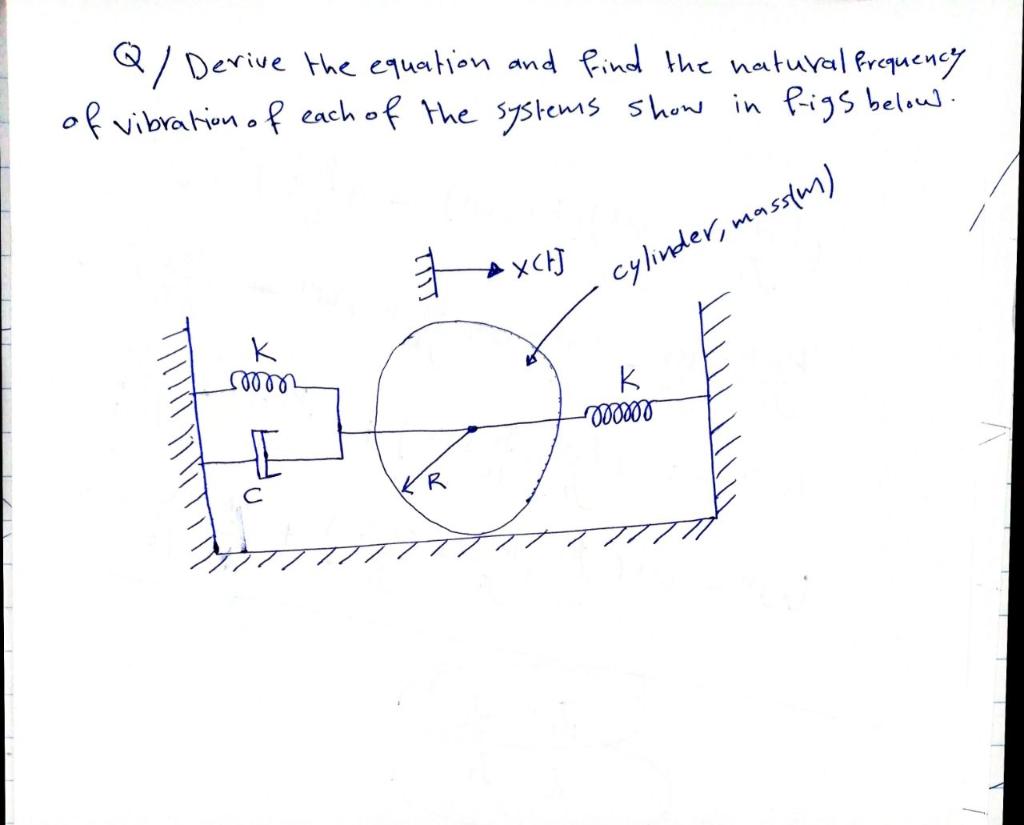 Q/ Derive the equation and find the natural frequency
of vibration of each of the systems show in figs below.
x(t)
cylinder, mass(m)
K
K
C
R